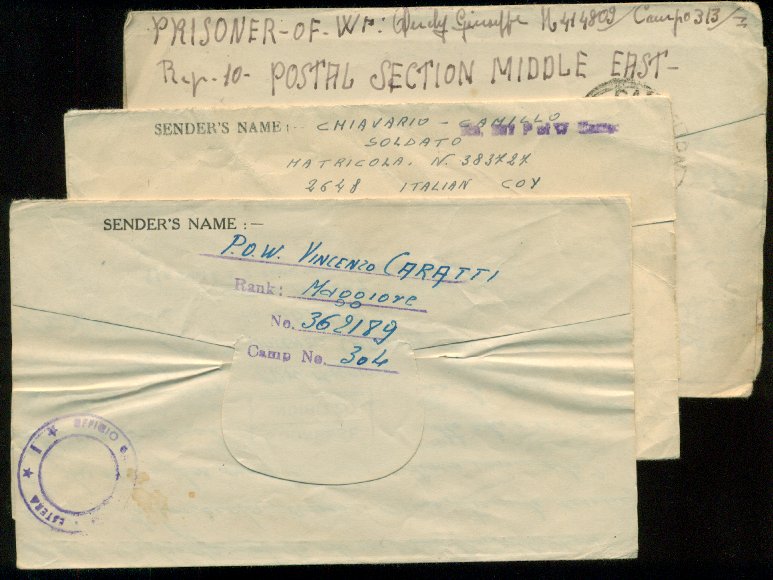 PRISONER-OF-Wr: Giuseppe N 414809/ Campo 313/
Rep. 10- POSTAL SECTION MIDDLE EAST-
SENDER'S NAME:- CHIAVARIO - CAMILLO
SOLDATO
MATRICOLA. N. 383727
2648 ITALIAN COY
SENDER'S NAME :—
P.O.W. VINCENZO CARATTI
Rank: Maggiore
No. 362189
Camp No. 304
UFFICIO
ESTERA